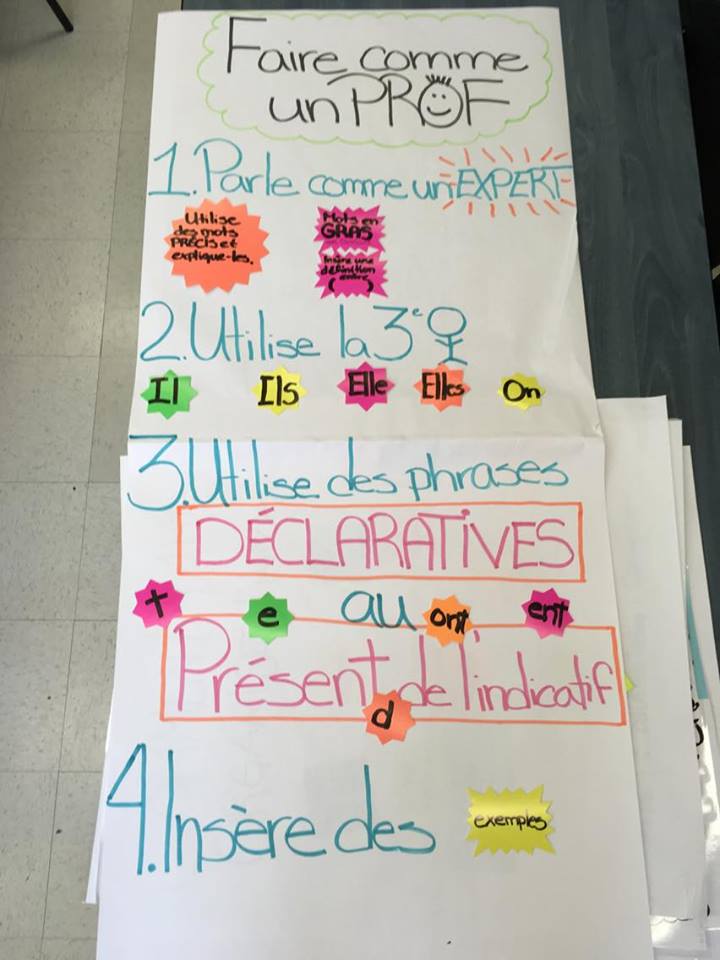 Faire comme
un PROF
1. Parle comme un EXPERT
Utilise
des mots
PRÉCIS et
explique-les.
Mots en
GRAS
Insère une
définition
entre
( )
2. Utilise la 3e
Il Ils Elle Elles On
3. Utilise des phrases
DÉCLARATIVES
t e au ont ent
Présent de l'indicatif
d
4. Insère des exemples